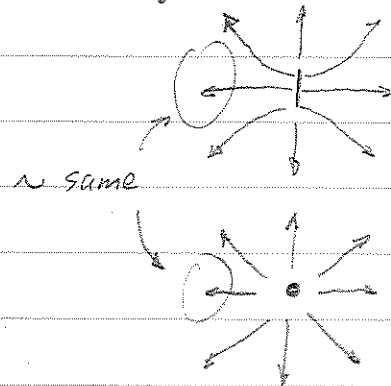 ~ same